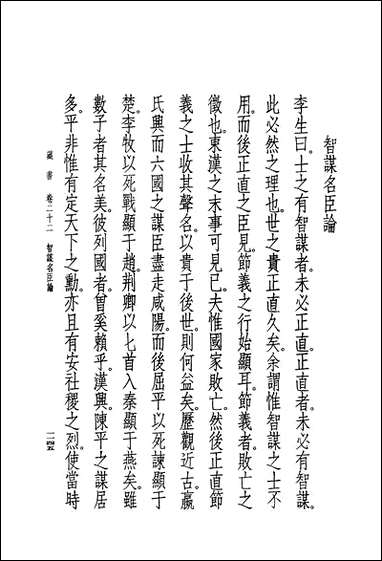 智謀名臣論
李生曰。士之有智謀者。未必正直。正直者。未必有智謀。
此必然之理也。世之貴正直久矣。余謂惟智謀之士不
用。而後正直之臣見。節義之行始顯耳。節義者。敗亡之
徵也。東漢之末。事可見已。夫惟國家敗亡。然後正直節
義之士收其聲名。以貴于後世。則何益矣。歷觀近古。嬴
氏興而六國之謀臣盡走咸陽。而後屈平以死諫顯于
楚。李牧以死戰顯于趙。荆卿以匕首入秦顯于燕矣。雖
數子者其名美。彼列國者。曾奚賴乎。漢興。陳平之謀居
多。平非惟有定天下之勳。亦且有安社稷之烈。使當時
藏書 卷二十二 智謀名臣論 二四五